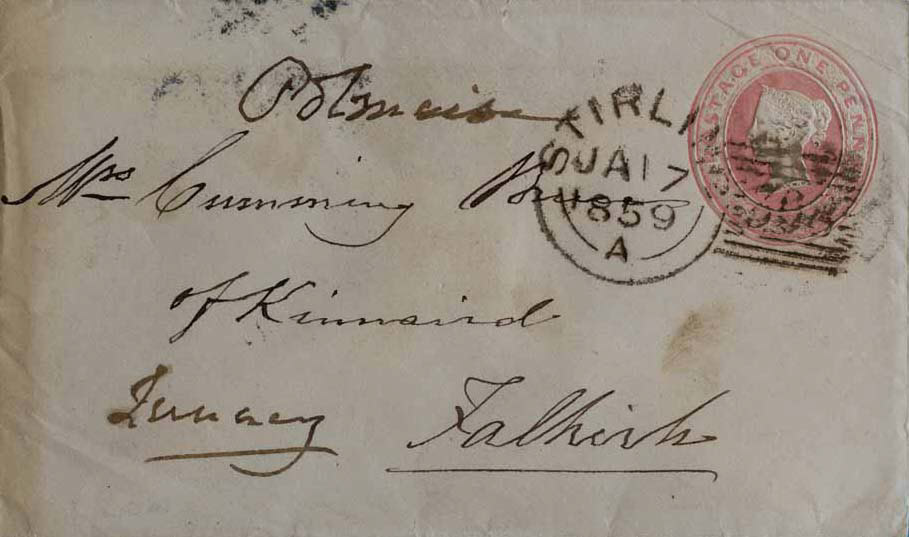 Polmaise
POSTAGE ONE PENNY
STIRLI
JA 17
1859
A
Mrs Cumming Bruce
of Kinnaird
Falkirk